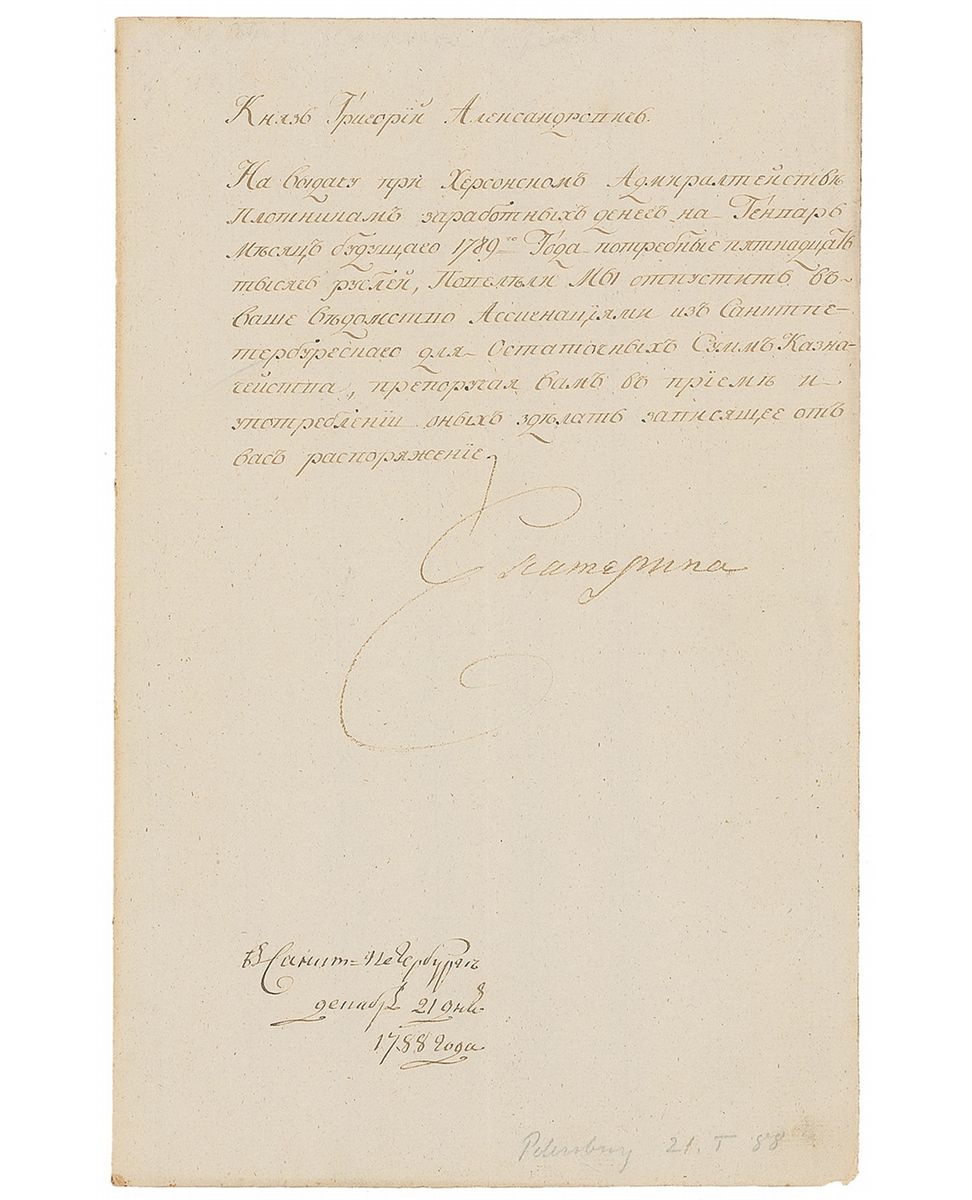 Князь Григорій Александровичь.
На выдачу при Херсонскомъ Адмиралтействѣ
Плотникамъ заработныхъ денегъ на Генварь
Мѣсяцъ будущаго 1789го Года потребные пятнадцать
тысячь рублей, Повелѣли Мы отпустить въ
ваше вѣдомство Ассигнаціями изъ Санктпе-
тербургскаго для Остаточныхъ Суммъ Казна-
чейства, препоручая вамъ въ пріемѣ и
употребленіи оныхъ здѣлать зависящее отъ
васъ распоряженіе.
Екатерина
въ Санкт=Петербургѣ
декабря 21 дня
1788 года
Petersburg 21. I 88